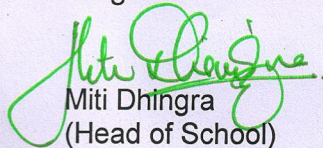 Miti Dhingra
Miti Dhingra
(Head of School)